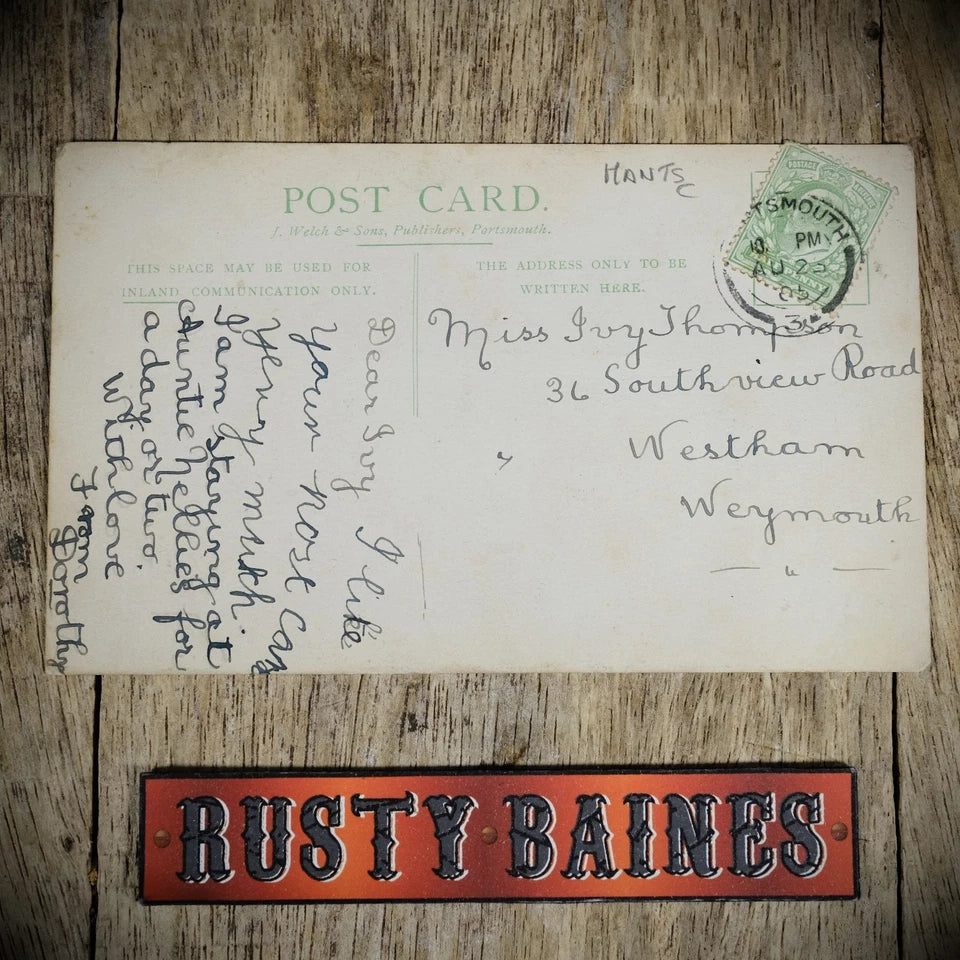 POST CARD.
J. Welch & Sons, Publishers, Portsmouth.
HANTS
THIS SPACE MAY BE USED FOR
INLAND COMMUNICATION ONLY.
THE ADDRESS ONLY TO BE
WRITTEN HERE.
POSTAGE
TSMOUTH
PM
AU 25
Miss Ivy Thompson
36 Southview Road
Westham
Weymouth
Dear Ivy I like
your Post Card
very much.
I am staying at
Auntie Nellies for
a day or two.
With love
From
Dorothy
RUSTY BAINES